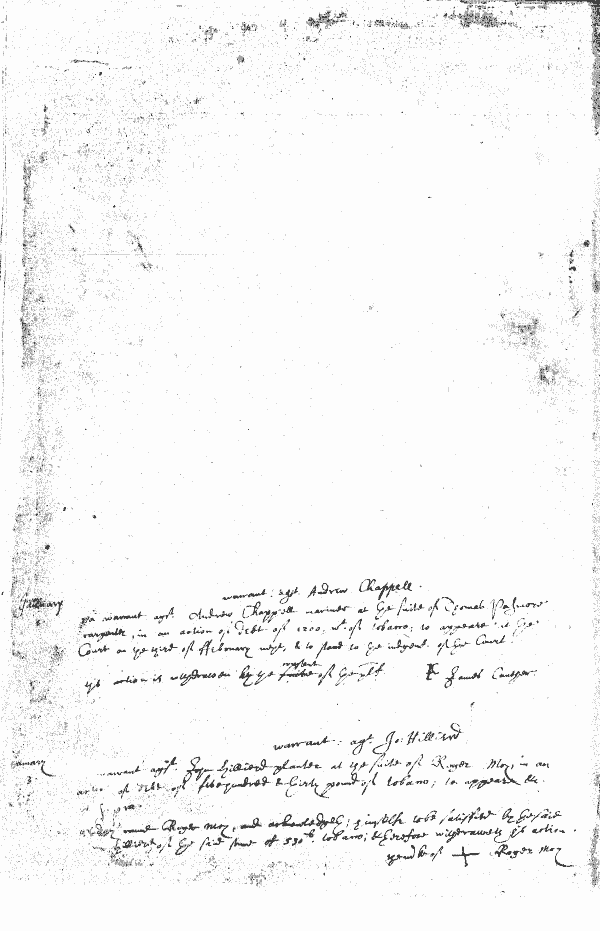 warrant: agst Andrew Chappell.
January
warrant agst. Andrew Chappell mariner at the suite of Thomas Pasmore
carpenter, in an action of debt of 1200. wt. of tobacco; to appeare at the
Court on the third of ffebruary next, & to stand to the judgmt. of the Court
action is withdrawen by the of the plf James Cauther
warrant: agst Jo: Hilliard
anuary
3.
warrant agst. John Hilliard planter at the suite of Roger Moy, in an
of debt of five hundred & thirty pound of tobacco; to appeare &c.
came Roger Moy, and acknowledgeth himselfe to be satisfied by the said
hilliard of the said summe of 530lb. tobacco; & therefore withdraweth his action.
of Roger Moy